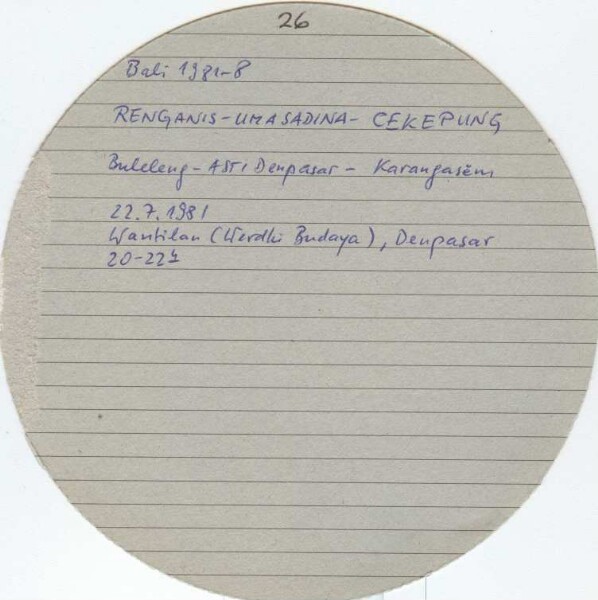 26
Bali 1981-8
RENGANIS-UMASADINA- CEKEPUNG
Buleleng - ASTI Denpasar - Karangasĕm
22.7.1981
Wantilan (Werdhi Budaya), Denpasar
20-22